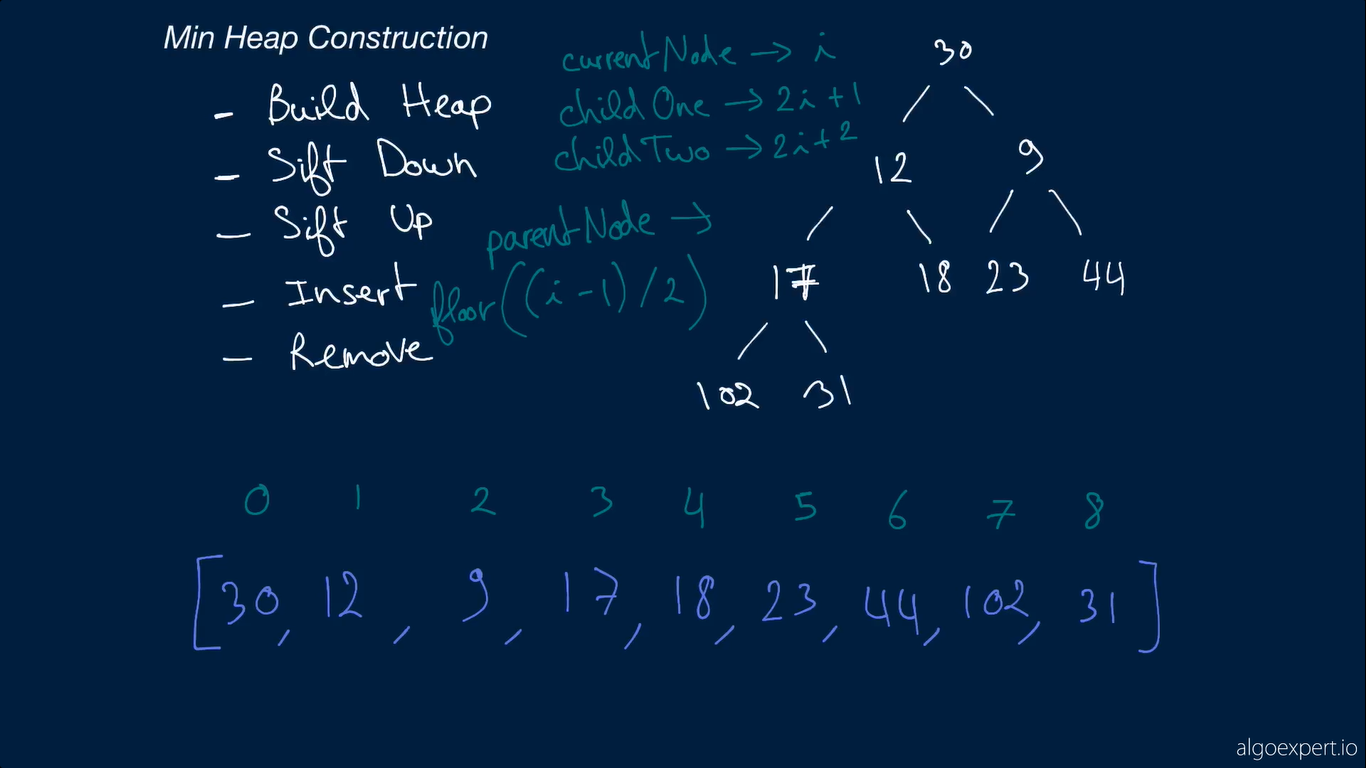 Min Heap Construction
- Build Heap
- Sift Down
- Sift Up
- Insert
- Remove
currentNode → i
childOne → 2i+1
childTwo → 2i+2
parentNode →
floor((i-1)/2)
30
12 9
17 18 23 44
102 31
0 1 2 3 4 5 6 7 8
[30, 12, 9, 17, 18, 23, 44, 102, 31]
algoexpert.io